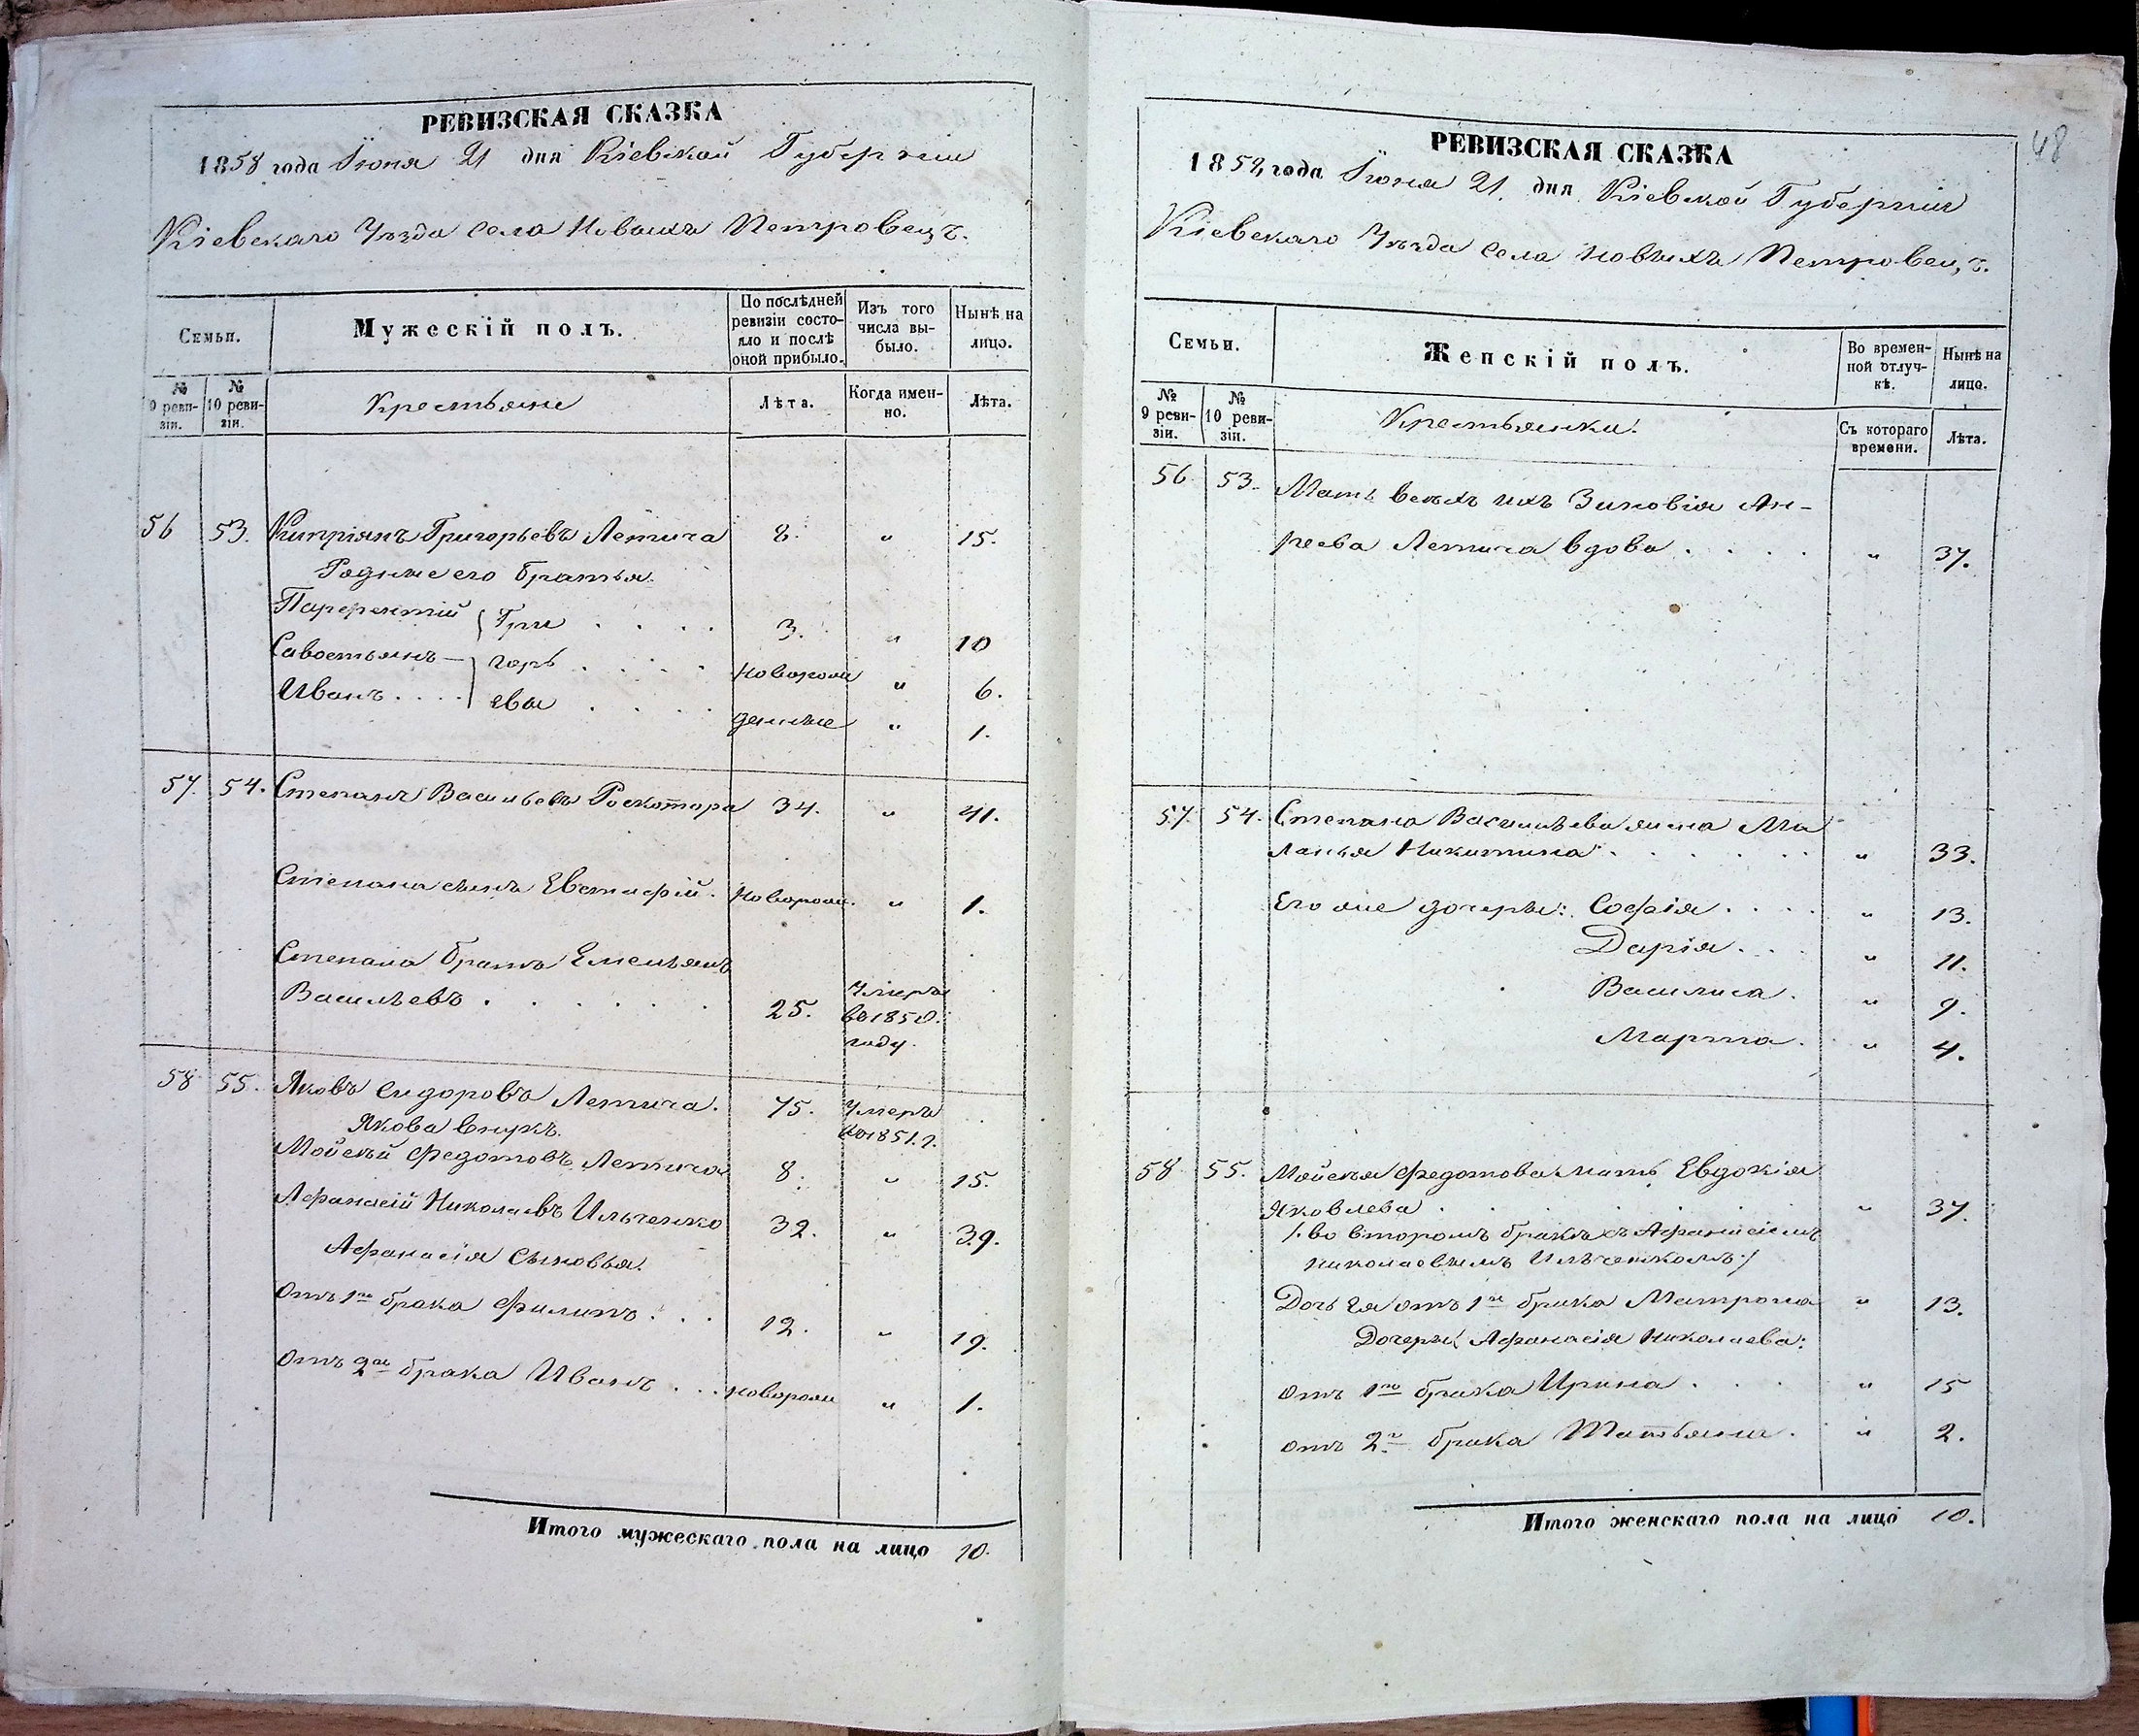 РЕВИЗСКАЯ СКАЗКА
1858 года Іюня 21 дня Кіевской Губерніи
Кіевскаго Уѣзда села Новыхъ Петровецъ.
Семьи.
Мужескій полъ.
По послѣдней ревизіи состояло и послѣ оной прибыло.
Изъ того числа выбыло.
Нынѣ на лицо.
№ 9 ревизіи.
№ 10 ревизіи.
Крестьяне
Лѣта.
Когда именно.
Лѣта.
56 53. Кипріянъ Григорьевъ Летича 8. " 15.
Родные его братья.
Парфентій Гри . . . . 3. " 10
Савостьянъ — горь . . . . новорож " 6.
Иванъ . . . . евы . . . . денные " 1.
57. 54. Степанъ Васильевъ Роскотора 34. " 41.
Степана сынъ Евстафій. новорож. " 1.
Степана братъ Емельянъ
Васильевъ . . . . . . 25. Умеръ
въ 1850.
году.
58 55. Яковъ Сидоровъ Летича. 75. Умеръ
въ 1851. г.
Якова внукъ.
Мойсей Федотовъ Летича 8. " 15.
Афанасій Николаевъ Ильченко 32. " 39.
Афанасія сыновья.
Отъ 1го брака Филипъ . . . 12. " 19.
Отъ 2го брака Иванъ . . . новорож " 1.
Итого мужескаго пола на лицо 10.
48
РЕВИЗСКАЯ СКАЗКА
1858 года Іюня 21 дня Кіевской Губерніи
Кіевскаго Уѣзда села Новыхъ Петровецъ.
Семьи.
Женскій полъ.
Во временной отлучкѣ.
Нынѣ на лицо.
№ 9 ревизіи.
№ 10 ревизіи.
Крестьянки.
Съ котораго времени.
Лѣта.
56 53. Мать всѣхъ ихъ Зиновія Ан-
реева Летича вдова . . . . " 37.
57. 54. Степана Васильева жена Ма
ланья Никитина . . . . . . " 33.
Его же дочери: Софія . . . . " 13.
Дарія . . . " 11.
Василиса . " 9.
Марта . " 4.
58 55. Мойсея Федотова мать Евдокія
Яковлева . . . . . . " 37.
/. во второмъ бракѣ съ Афанасіемъ
Николаевымъ Ильченкомъ ./
Дочь ея отъ 1го брака Матрона " 13.
Дочери Афанасія Николаева:
отъ 1го брака Ирина . . . " 15
отъ 2го брака Татьяна . " 2.
Итого женскаго пола на лицо 10.